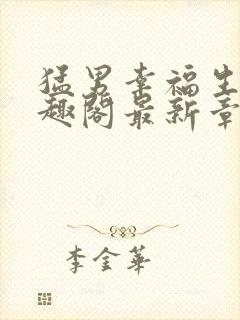 猛男幸福生
趣阁最新章
李金华